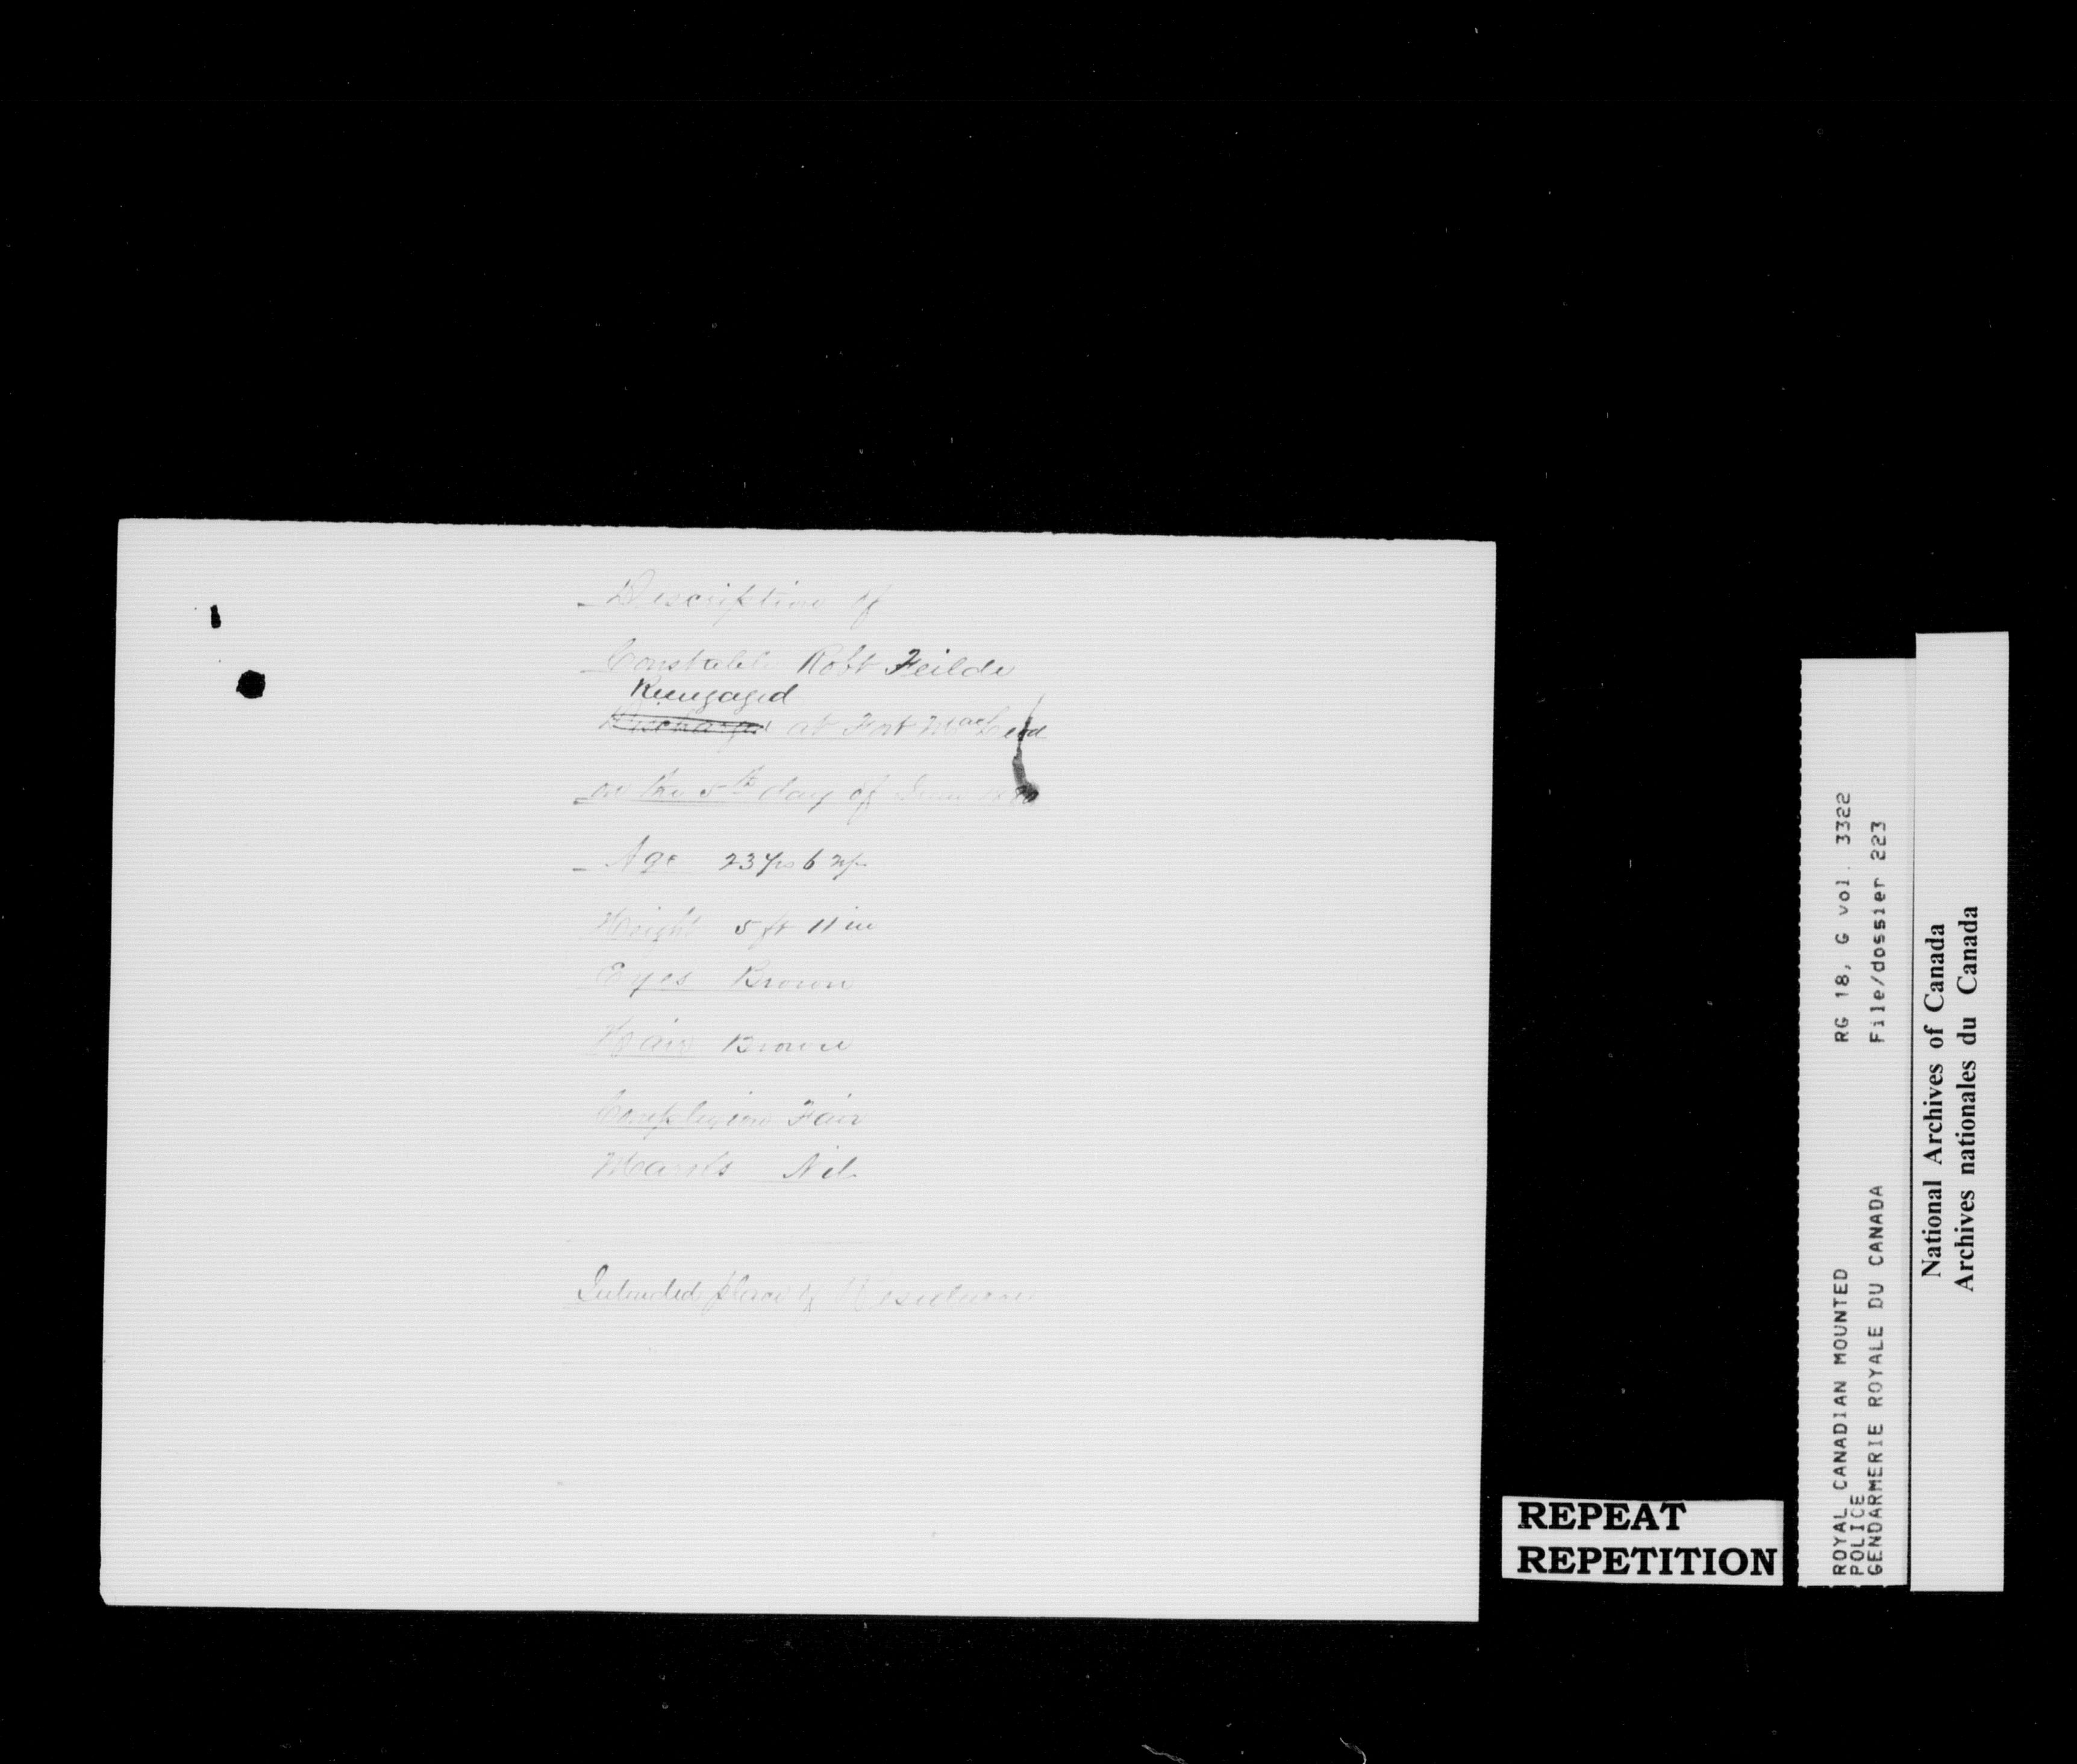 Description of
Constable Robt Feilde
Reengaged
Discharged at Fort MacLeod
on the 5th day of June 1880
Age 23 yrs 6 m
Height 5 ft 11 in
Eyes Brown
Hair Brown
Complexion Fair
Marks Nil
Intended place of Residence
REPEAT
REPETITION
ROYAL CANADIAN MOUNTED
POLICE
GENDARMERIE ROYALE DU CANADA
RG 18, G vol. 3322
File/dossier 223
National Archives of Canada
Archives nationales du Canada